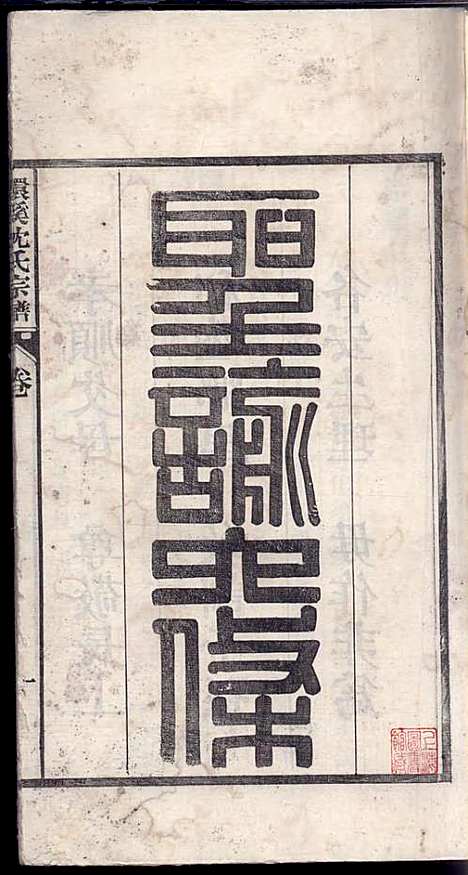 聖諭六條
環溪沈氏宗譜
卷
一